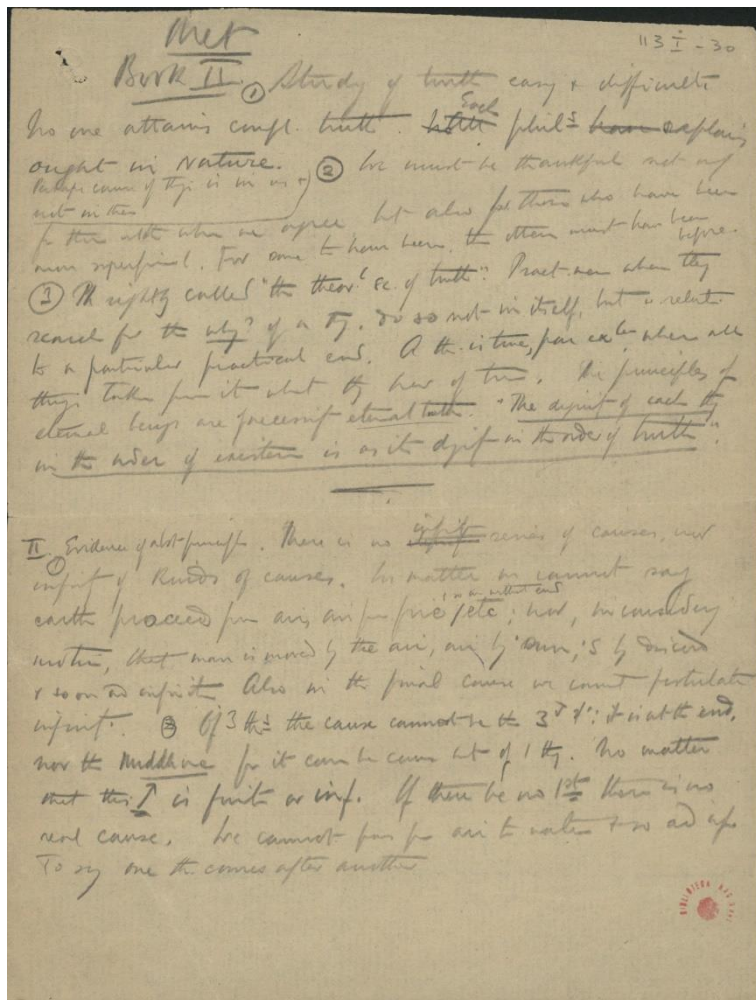 Met
113 I-30
Book II. ① Study of truth easy & difficult
No one attains compl. truth. Each phil<sup>s</sup> explains
ought in Nature. ② We must be thankful not only
Perhaps cause of this is in us &
not in them
for those with whom we agree, but also for those who have been
more superficial. For some to have been, the others must have been before.
③ Ph rightly called "the theor<sup>l</sup> sc. of truth". Pract. men when they
search for the why? of a thg. do so not in itself, but in relatn
to a particular practical end. A th. is true, par ex<sup>ce</sup> when all
things taken from it what thy have of true. The principles of
eternal beings are eternal truths. "The dignity of each thg
in the order of existence is as its dignity in the order of truth".
II ① Evidence of abst. principles. There is no infinite series of causes, nor
infinity of Kinds of causes. In matter we cannot say
earth proceeds from air, air from fire, etc; nor, in considering
so on without end
motion, that man is moved by the air, air by sun, S by discord
& so on ad infinitum Also in the final cause we cannot postulate
infinity. ② Of 3 ths the cause cannot be the 3rd: it is at the end,
nor the Middle one for it can be cause but of 1 thg. No matter
that this is finite or inf. If there be no 1st there is no
real cause. We cannot pass from air to water & so ad inf.
To say one th comes after another